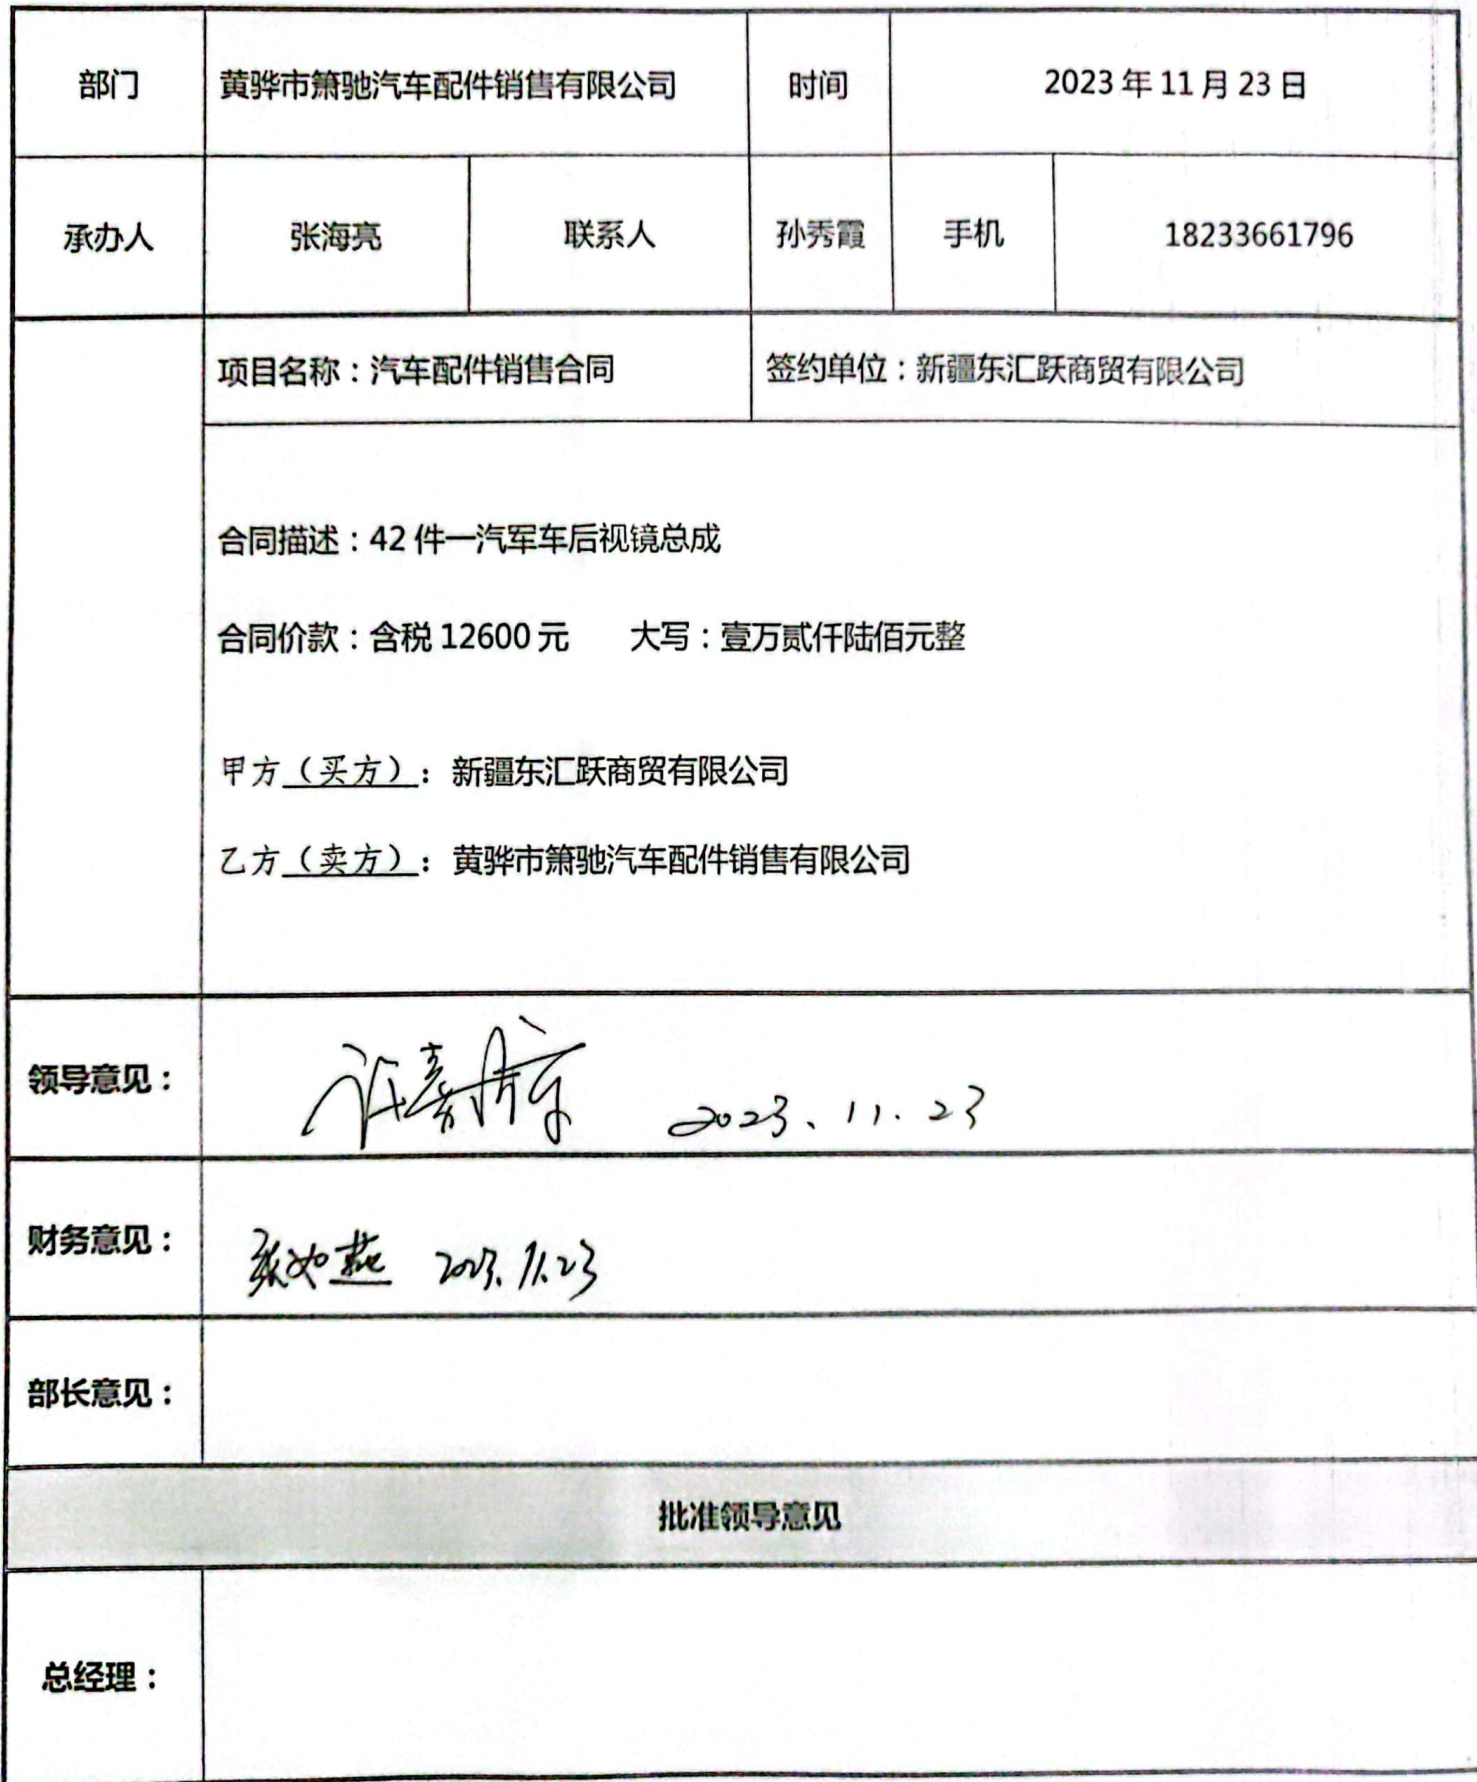 部门 黄骅市箫驰汽车配件销售有限公司 时间 2023年11月23日
承办人 张海亮 联系人 孙秀霞 手机 18233661796
项目名称：汽车配件销售合同 签约单位：新疆东汇跃商贸有限公司
合同描述：42件一汽军车后视镜总成
合同价款：含税12600元 大写：壹万贰仟陆佰元整
甲方（买方）：新疆东汇跃商贸有限公司
乙方（卖方）：黄骅市箫驰汽车配件销售有限公司
领导意见： 2023、11.23
财务意见： 2023.11.23
部长意见：
批准领导意见
总经理：